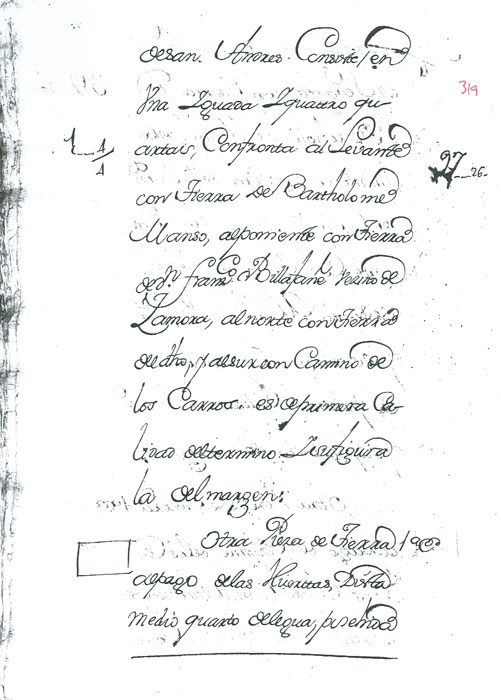 de san. Andres. Consiste, en
319
Vna Yguada Y quatro qu
1 1/4
artas, Confronta al Levante
27
26
con Tierra de Bartholome
Manso, alponiente con Tierra
de dn. franco. Villafañe Vecino de
Zamora, al norte con Tierra
de dho, y al sur con Camino de
los Carros. es de primera Ca
lidad del termino Y su figura
la del margen:
Otra Pieza de Tierra
de pago delas Huertas, Dista
medio quarto de legua,